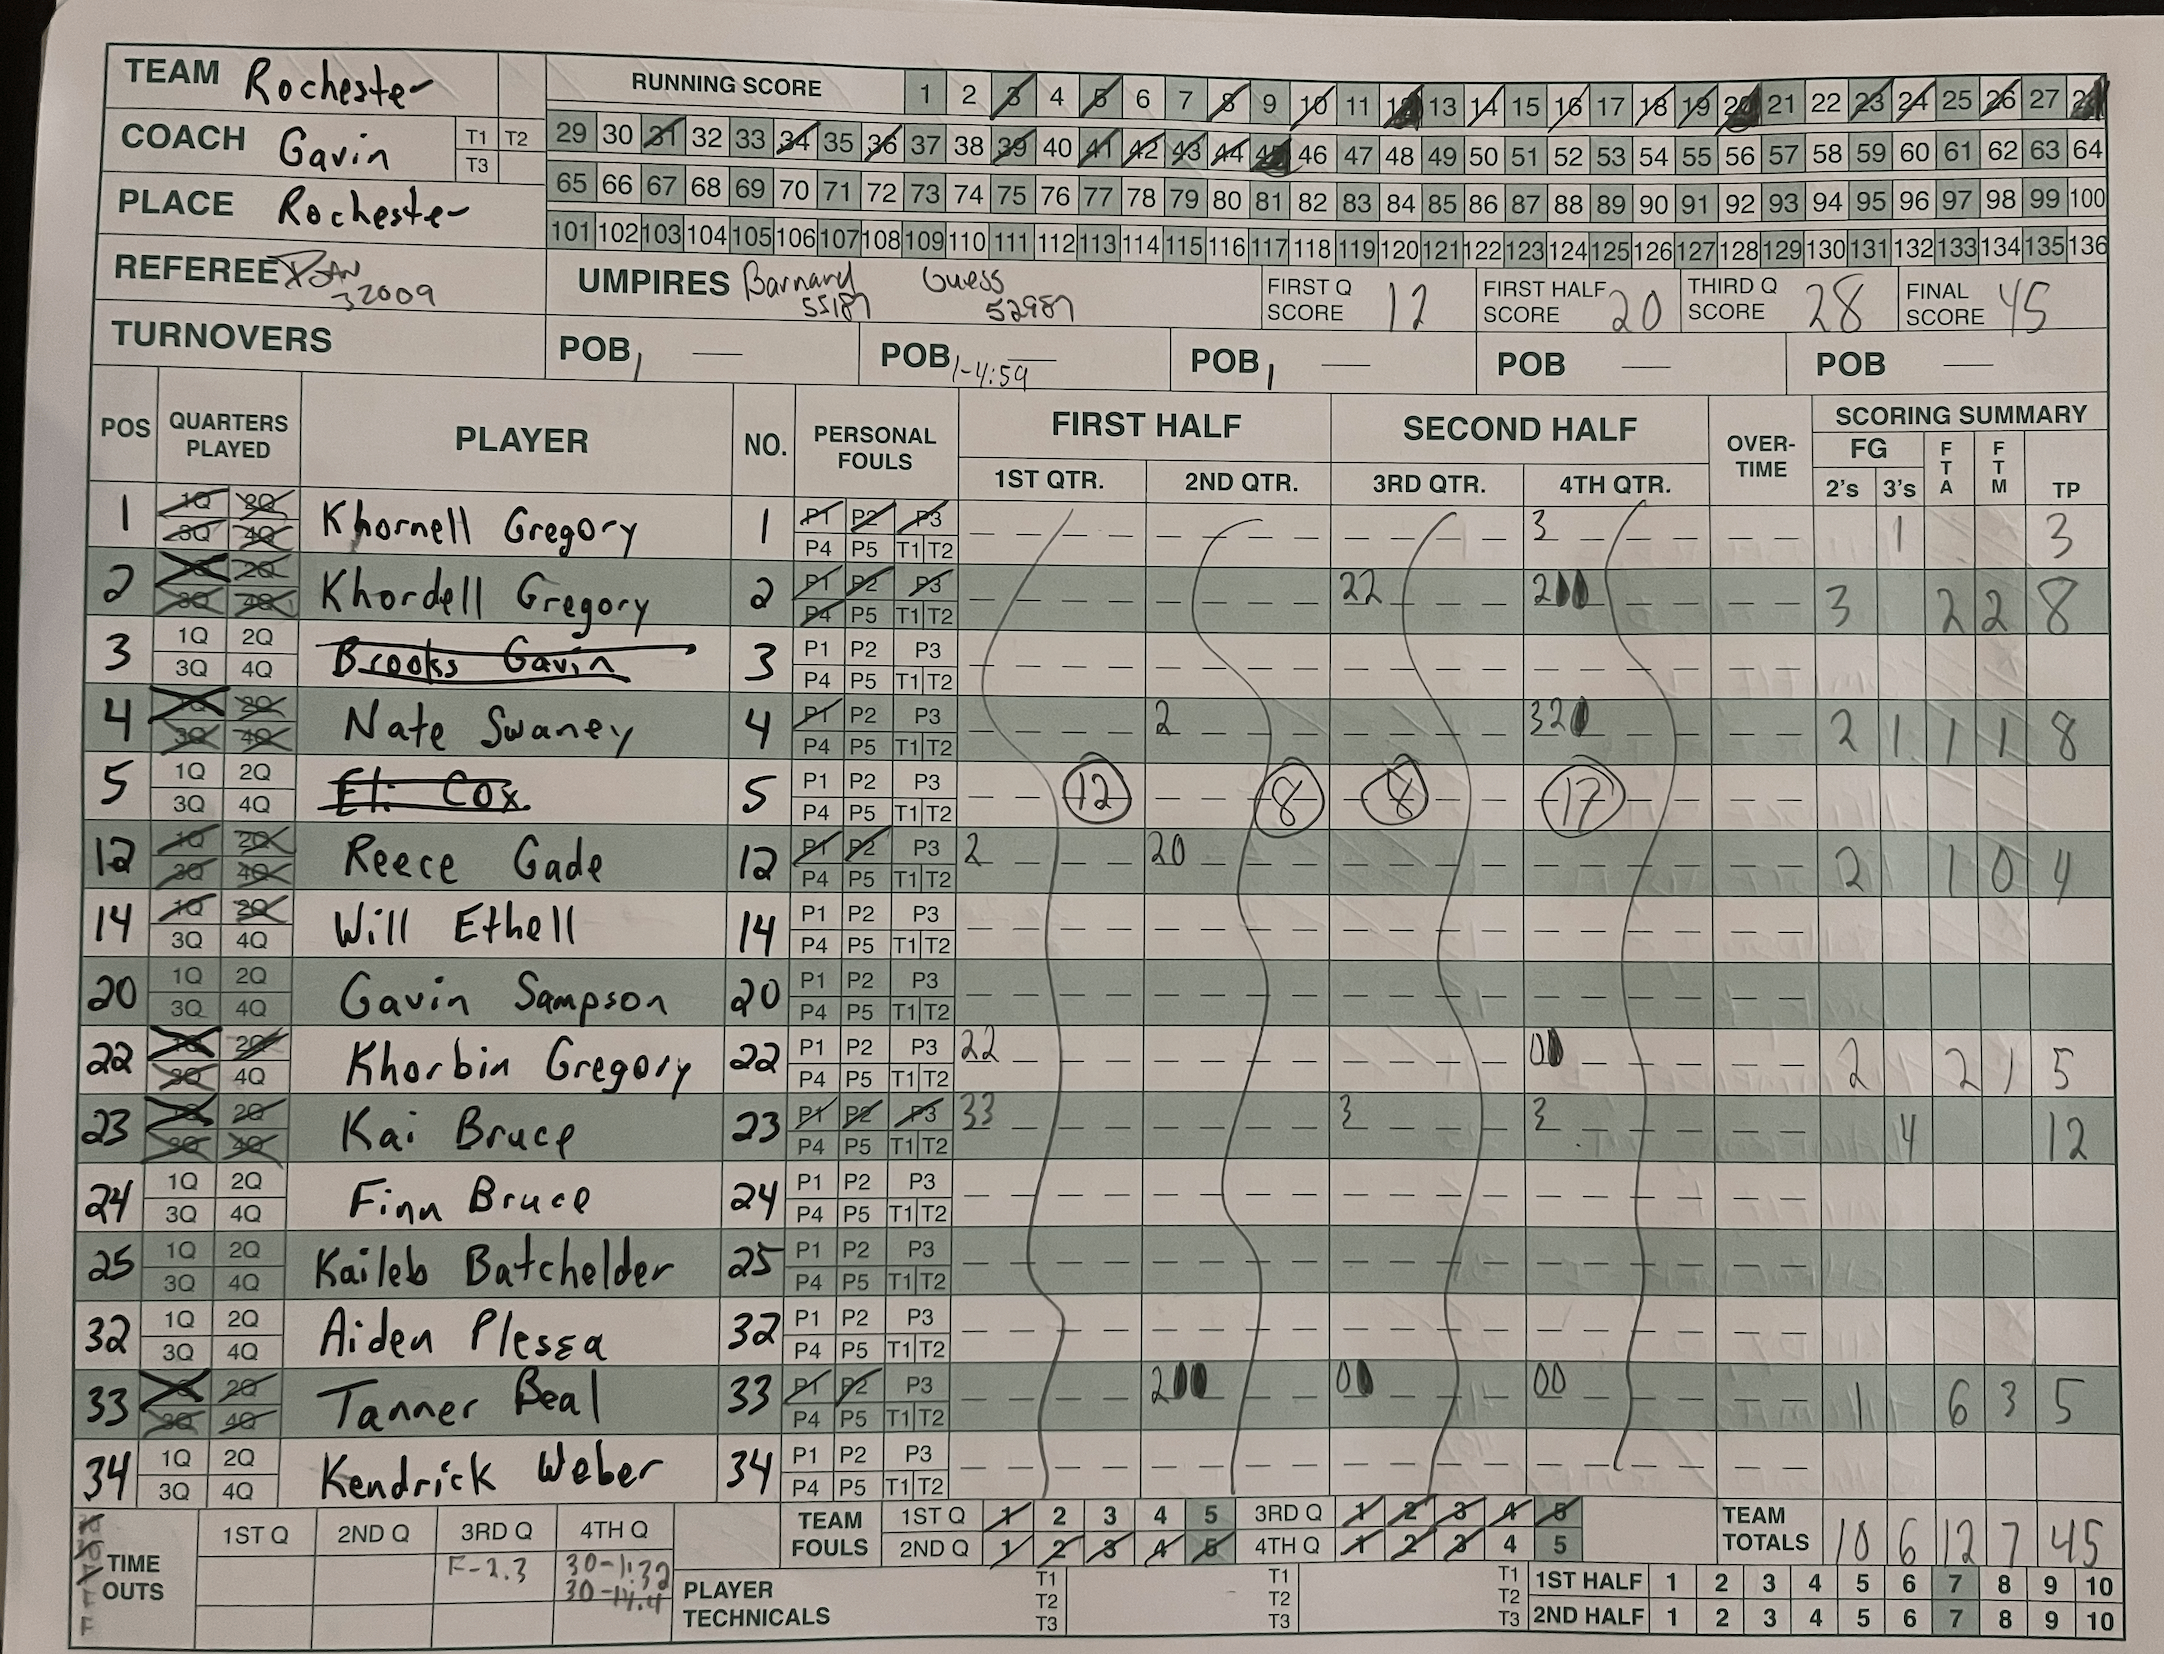 TEAM Rochester
RUNNING SCORE 1 2 3 4 5 6 7 8 9 10 11 12 13 14 15 16 17 18 19 20 21 22 23 24 25 26 27 28
COACH Gavin T1 T2 T3
29 30 31 32 33 34 35 36 37 38 39 40 41 42 43 44 45 46 47 48 49 50 51 52 53 54 55 56 57 58 59 60 61 62 63 64
PLACE Rochester
65 66 67 68 69 70 71 72 73 74 75 76 77 78 79 80 81 82 83 84 85 86 87 88 89 90 91 92 93 94 95 96 97 98 99 100
101 102 103 104 105 106 107 108 109 110 111 112 113 114 115 116 117 118 119 120 121 122 123 124 125 126 127 128 129 130 131 132 133 134 135 136
REFEREE 32009
UMPIRES Barnard 55187 Guess 52987
FIRST Q SCORE 12 FIRST HALF SCORE 20 THIRD Q SCORE 28 FINAL SCORE 45
TURNOVERS POB 1 — POB 1-4:59 — POB 1 — POB — POB —
POS QUARTERS PLAYED PLAYER NO. PERSONAL FOULS FIRST HALF SECOND HALF OVER-TIME SCORING SUMMARY
1ST QTR. 2ND QTR. 3RD QTR. 4TH QTR. FG 2's 3's FTA FTM TP
1 1Q 2Q 3Q 4Q Khornell Gregory 1 P1 P2 P3 P4 P5 T1 T2 3 1 3
2 1Q 2Q 3Q 4Q Khordell Gregory 2 P1 P2 P3 P4 P5 T1 T2 22 200 3 2 2 8
3 1Q 2Q 3Q 4Q Brooks Gavin 3 P1 P2 P3 P4 P5 T1 T2
4 1Q 2Q 3Q 4Q Nate Swaney 4 P1 P2 P3 P4 P5 T1 T2 2 320 2 1 1 1 8
5 1Q 2Q 3Q 4Q Eli Cox 5 P1 P2 P3 P4 P5 T1 T2 12 8 8 17
12 1Q 2Q 3Q 4Q Reece Gade 12 P1 P2 P3 P4 P5 T1 T2 2 20 2 1 0 4
14 1Q 2Q 3Q 4Q Will Ethell 14 P1 P2 P3 P4 P5 T1 T2
20 1Q 2Q 3Q 4Q Gavin Sampson 20 P1 P2 P3 P4 P5 T1 T2
22 1Q 2Q 3Q 4Q Khorbin Gregory 22 P1 P2 P3 P4 P5 T1 T2 22 00 2 2 1 5
23 1Q 2Q 3Q 4Q Kai Bruce 23 P1 P2 P3 P4 P5 T1 T2 33 3 3 4 12
24 1Q 2Q 3Q 4Q Finn Bruce 24 P1 P2 P3 P4 P5 T1 T2
25 1Q 2Q 3Q 4Q Kaileb Batchelder 25 P1 P2 P3 P4 P5 T1 T2
32 1Q 2Q 3Q 4Q Aiden Plessa 32 P1 P2 P3 P4 P5 T1 T2
33 1Q 2Q 3Q 4Q Tanner Beal 33 P1 P2 P3 P4 P5 T1 T2 200 00 00 1 6 3 5
34 1Q 2Q 3Q 4Q Kendrick Weber 34 P1 P2 P3 P4 P5 T1 T2
TIME OUTS 1ST Q 2ND Q 3RD Q 4TH Q
F-2.3 30-1:32
30-14.4
TEAM FOULS 1ST Q 1 2 3 4 5 3RD Q 1 2 3 4 5
2ND Q 1 2 3 4 5 4TH Q 1 2 3 4 5
TEAM TOTALS 10 6 12 7 45
PLAYER TECHNICALS T1 T2 T3 T1 T2 T3 T1 T2 T3
1ST HALF 1 2 3 4 5 6 7 8 9 10
2ND HALF 1 2 3 4 5 6 7 8 9 10